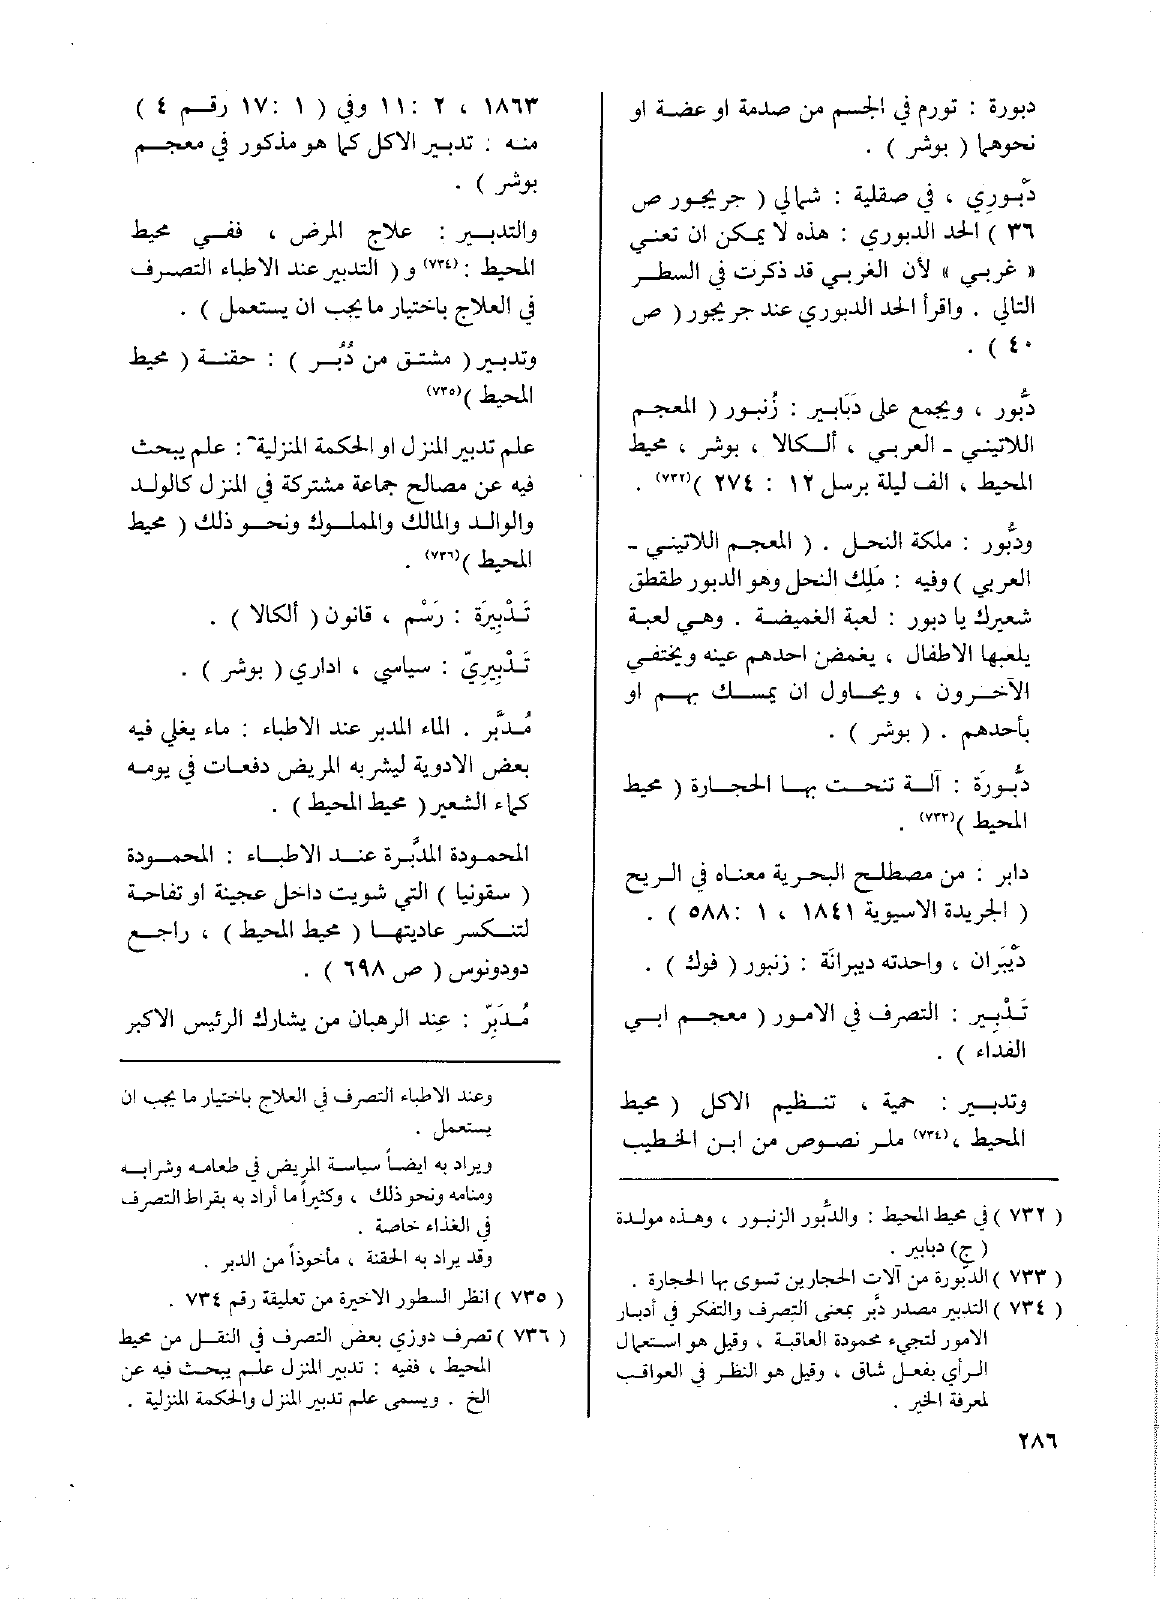 دبورة : تورم في الجسم من صدمة او عضة او
نحوها ( بوشر ) .
دَّبُورِي ، في صقلية : شمالي ( جريجور ص
٣٦ ) الحد الدبوري : هذه لا يمكن ان تعني
« غربي » لأن الغربي قد ذكرت في السطر
التالي . واقرأ الحد الدبوري عند جريجور ( ص
٤٠ ) .
دَبُّور ، ويجمع على دَبَابير : زُنبور ( المعجم
اللاتيني - العربي ، ألكالا ، بوشر ، محيط
المحيط ، الف ليلة برسل ١٢ : ٢٧٤ )(٧٣٢) .
ودَبُّور : ملكة النحل . ( المعجم اللاتيني -
العربي ) وفيه : مَلِك النحل وهو الدبور طقطق
شعيرك يا دبور : لعبة الغميضة . وهي لعبة
يلعبها الاطفال ، يغمض احدهم عينه ويختفي
الآخرون ، ويحاول ان يمسك بهم او
بأحدهم . ( بوشر ) .
دَبُّورَة : آلة تنحت بها الحجارة ( محيط
المحيط )(٧٣٣) .
دابر : من مصطلح البحرية معناه في الريح
( الجريدة الاسيوية ١٨٤١ ، ١ : ٥٨٨ ) .
دَيْبَران ، واحدته ديبرانَة : زنبور ( فوك ) .
تَدْبِير : التصرف في الامور ( معجم ابي
الفداء ) .
وتدبير : حمية ، تنظيم الاكل ( محيط
المحيط ،(٧٣٤) ملر نصوص من ابن الخطيب
( ٧٣٢ ) في محيط المحيط : والدَّبُّور الزنبور ، وهذه مولدة
( ج ) دبابير .
( ٧٣٣ ) الدبّورة من آلات الحجارين تسوى بها الحجارة .
( ٧٣٤ ) التدبير مصدر دبَّر بمعنى التصرف والتفكر في أدبار
الامور لتجيء محمودة العاقبة ، وقيل هو استعمال
الرأي بفعل شاق ، وقيل هو النظر في العواقب
لمعرفة الخير .
١٨٦٣ ، ٢ : ١١ وفي ( ١ : ١٧ رقم ٤ )
منه : تدبير الاكل كما هو مذكور في معجم
بوشر ) .
والتدبير : علاج المرض ، ففي محيط
المحيط :(٧٣٤) و( التدبير عند الاطباء التصرف
في العلاج باختيار ما يجب ان يستعمل ) .
وتدبير ( مشتق من دُبُر ) : حقنة ( محيط
المحيط )(٧٣٥)
علم تدبير المنزل او الحكمة المنزلية : علم يبحث
فيه عن مصالح جماعة مشتركة في المنزل كالولد
والوالد والمالك والمملوك ونحو ذلك ( محيط
المحيط )(٧٣٦) .
تَدْبِيرَة : رَسْم ، قانون ( ألكالا ) .
تَدْبِيرِيّ : سياسي ، اداري ( بوشر ) .
مُدَبَّر . الماء المدبر عند الاطباء : ماء يغلي فيه
بعض الادوية ليشربه المريض دفعات في يومه
كماء الشعير ( محيط المحيط ) .
المحمودة المدبَّرة عند الاطباء : المحمودة
( سقونيا ) التي شويت داخل عجينة او تفاحة
لتنكسر عاديتها ( محيط المحيط ) ، راجع
دودونوس ( ص ٦٩٨ ) .
مُدَبِّر : عِند الرهبان من يشارك الرئيس الاكبر
وعند الاطباء التصرف في العلاج باختيار ما يجب ان
يستعمل .
ويراد به ايضاً سياسة المريض في طعامه وشرابه
ومنامه ونحو ذلك ، وكثيراً ما أراد به بقراط التصرف
في الغذاء خاصة .
وقد يراد به الحقنة ، مأخوذاً من الدبر .
( ٧٣٥ ) انظر السطور الاخيرة من تعليقة رقم ٧٣٤ .
( ٧٣٦ ) تصرف دوزي بعض التصرف في النقل من محيط
المحيط ، ففيه : تدبير المنزل علم يبحث فيه عن
الخ . ويسمى علم تدبير المنزل والحكمة المنزلية .
٢٨٦